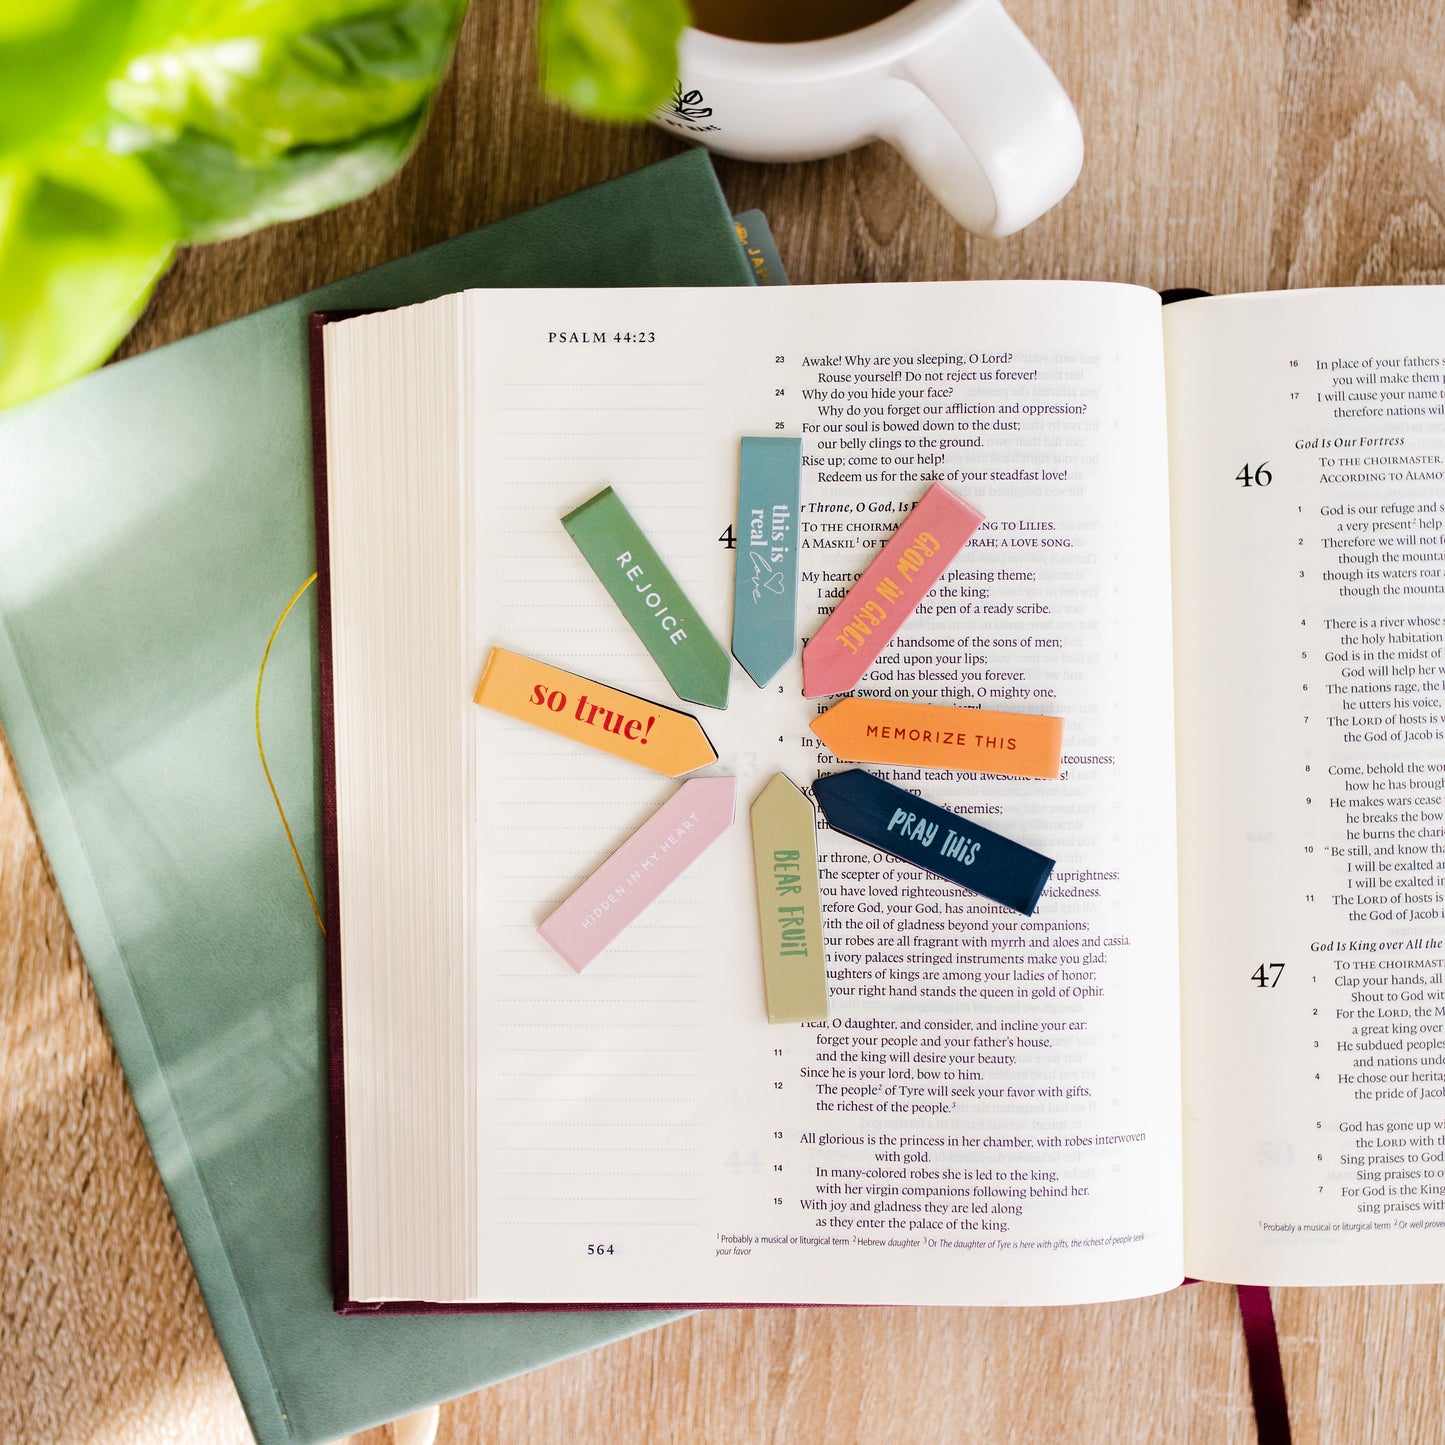 MY NAME
JAR
PSALM 44:23
23 Awake! Why are you sleeping, O Lord?
Rouse yourself! Do not reject us forever!
24 Why do you hide your face?
Why do you forget our affliction and oppression?
25 For our soul is bowed down to the dust;
our belly clings to the ground.
Rise up; come to our help!
Redeem us for the sake of your steadfast love!
r Throne, O God, Is
TO THE CHOIRMA NG TO LILIES.
A MASKIL¹ OF RAH; A LOVE SONG.
My heart a pleasing theme;
I addr to the king;
my the pen of a ready scribe.
handsome of the sons of men;
ured upon your lips;
God has blessed you forever.
3 your sword on your thigh, O mighty one,
in
4 In
for teousness;
let ht hand teach you awesome
enemies;
ur throne, O
The scepter of your uprightness;
you have loved righteousness wickedness.
refore God, your God, has anointed
with the oil of gladness beyond your companions;
our robes are all fragrant with myrrh and aloes and cassia.
ivory palaces stringed instruments make you glad;
aughters of kings are among your ladies of honor;
your right hand stands the queen in gold of Ophir.
Hear, O daughter, and consider, and incline your ear:
forget your people and your father's house,
11 and the king will desire your beauty.
Since he is your lord, bow to him.
12 The people² of Tyre will seek your favor with gifts,
the richest of the people.³
13 All glorious is the princess in her chamber, with robes interwoven
with gold.
14 In many-colored robes she is led to the king,
with her virgin companions following behind her.
15 With joy and gladness they are led along
as they enter the palace of the king.
564
¹ Probably a musical or liturgical term ² Hebrew daughter ³ Or The daughter of Tyre is here with gifts, the richest of people seek
your favor
REJOICE
this is
real
love
GROW IN GRACE
so true!
MEMORIZE THIS
HIDDEN IN MY HEART
BEAR FRUIT
PRAY THIS
16 In place of your fathers
you will make them
17 I will cause your name
therefore nations
God Is Our Fortress
46 TO THE CHOIRMASTER.
ACCORDING TO ALAMO
1 God is our refuge and
a very present² help
2 Therefore we will not
though the mounta
3 though its waters roar
though the mounta
4 There is a river whose
the holy habitation
5 God is in the midst of
God will help her
6 The nations rage, the
he utters his voice,
7 The LORD of hosts is
the God of Jacob is
8 Come, behold the
how he has
9 He makes wars cease
he breaks the bow
he burns the
10 "Be still, and know
I will be exalted
I will be exalted
11 The LORD of hosts is
the God of Jacob
God Is King over All the
47 TO THE CHOIRMAST
1 Clap your hands, all
Shout to God
2 For the LORD, the
a great king over
3 He subdued peoples
and nations
4 He chose our
the pride of
5 God has gone up
the LORD with
6 Sing praises to God
Sing praises to
7 For God is the King
sing praises
¹ Probably a musical or liturgical term ² Or well